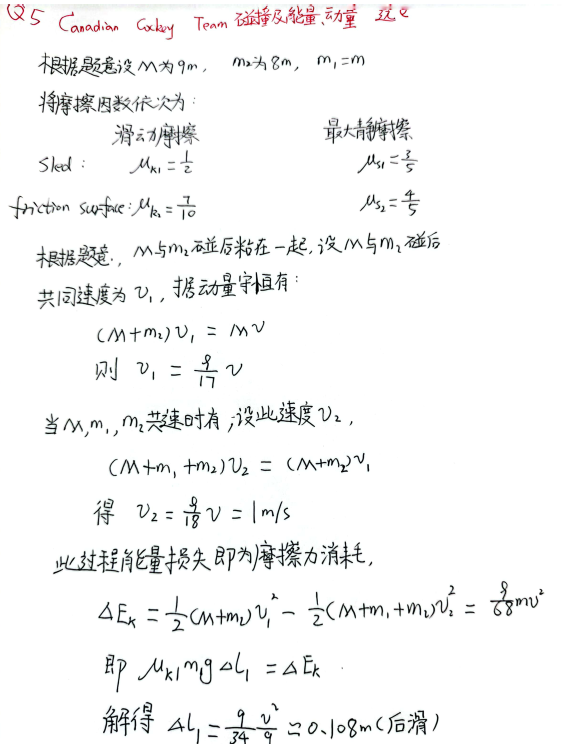 Q5 Canadian Cockey Team 碰撞及能量、动量
根据题意设M为9m, m₂为8m, m₁=m
将摩擦因数依次为:
滑动摩擦 最大静摩擦
Sled: μk₁=1/2 μs₁=3/5
friction surface: μk₂=7/10 μs₂=4/5
根据题意, M与m₂碰后粘在一起, 设M与m₂碰后
共同速度为v₁, 据动量守恒有:
(M+m₂)v₁ = Mv
则 v₁ = 9/17 v
当M, m₁, m₂共速时有, 设此速度v₂,
(M+m₁+m₂)v₂ = (M+m₂)v₁
得 v₂ = 9/18 v = 1m/s
此过程能量损失即为摩擦力消耗,
ΔEk = 1/2(M+m₂)v₁² - 1/2(M+m₁+m₂)v₂² = 9/68 mv²
即 μk₁m₁gΔL₁ = ΔEk.
解得 ΔL₁ = 9/34 v²/g ≈ 0.108m(后滑)